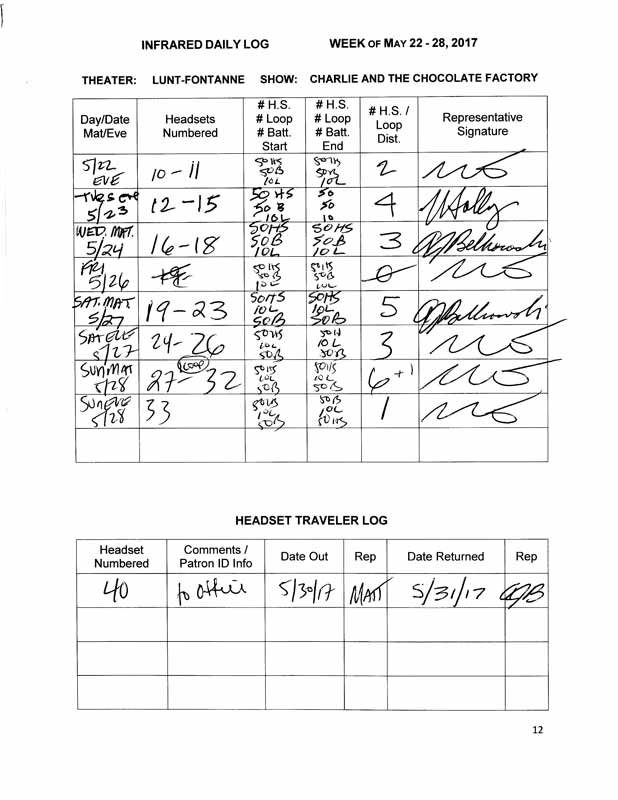 INFRARED DAILY LOG WEEK OF MAY 22 - 28, 2017
THEATER: LUNT-FONTANNE SHOW: CHARLIE AND THE CHOCOLATE FACTORY
Day/Date Mat/Eve Headsets Numbered # H.S. # Loop # Batt. Start # H.S. # Loop # Batt. End # H.S. / Loop Dist. Representative Signature
5/22 EVE 10-11 50HS 50B 10L 50HS 50B 10L 2
TUES EVE 5/23 12-15 50HS 50B 10L 50 50 10 4
WED. MAT. 5/24 16-18 50HS 50B 10L 50HS 50B 10L 3 AJBelkowski
FRI 5/26 50HS 50B 10L 50HS 50B 10L 0
SAT. MAT 5/27 19-23 50HS 10L 50B 50HS 10L 50B 5 AJBelkowski
SAT EVE 5/27 24-26 50HS 10L 50B 50H 10L 50B 3
SUN MAT 5/28 27-32 (LOOP) 50HS 10L 50B 50HS 10L 50B 6+1
SUN EVE 5/28 33 50HS 10L 50B 50B 10L 50HS 1
HEADSET TRAVELER LOG
Headset Numbered Comments / Patron ID Info Date Out Rep Date Returned Rep
40 to office 5/30/17 MATT 5/31/17 AJB
12